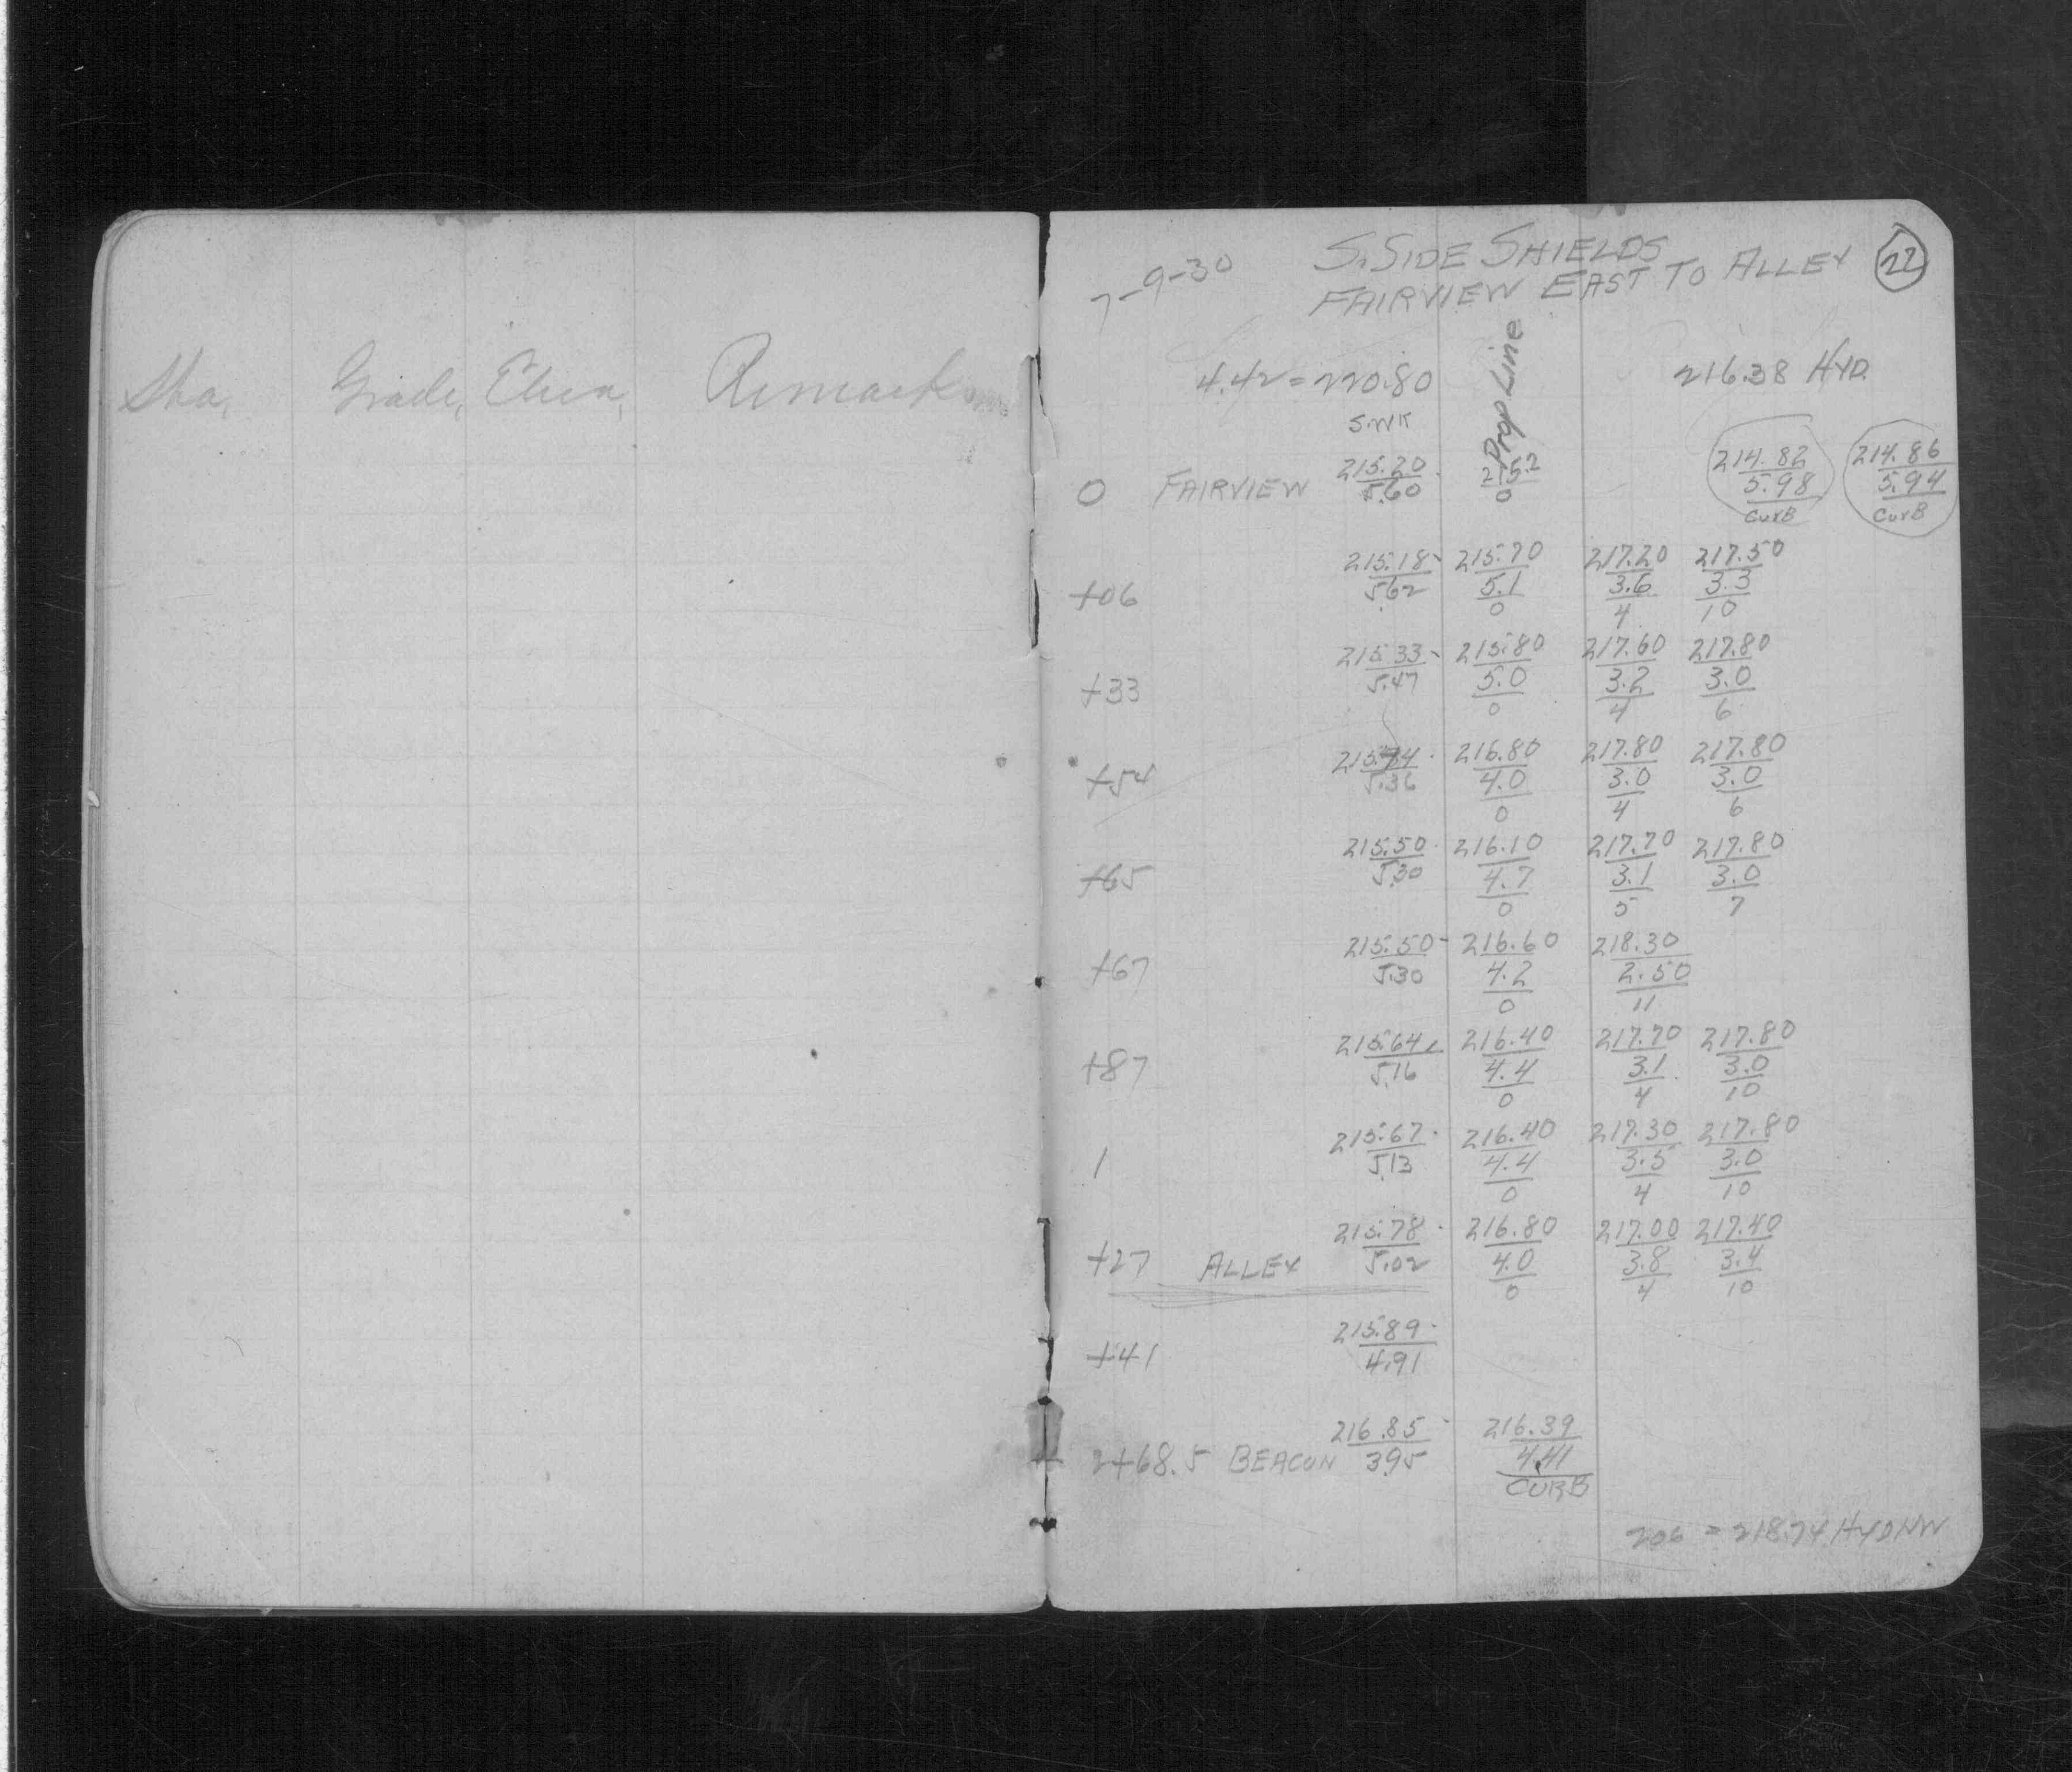 Sta, Grade, Elev, Remarks
7-9-30 S. SIDE SHIELDS
FAIRVIEW EAST TO ALLEY 22
4.42 = 220.80 Prop Line 216.38 HYD.
S.WK
0 FAIRVIEW 215.20 215.2 214.82 214.86
5.60 0 5.98 5.94
CurB CurB
+06 215.18 215.70 217.20 217.50
5.62 5.1 3.6 3.3
0 4 10
+33 215.33 215.80 217.60 217.80
5.47 5.0 3.2 3.0
0 4 6
+54 215.44 216.80 217.80 217.80
5.36 4.0 3.0 3.0
0 4 6
+65 215.50 216.10 217.70 217.80
5.30 4.7 3.1 3.0
0 5 7
+67 215.50 216.60 218.30
5.30 4.2 2.50
0 11
+87 215.64 216.40 217.70 217.80
5.16 4.4 3.1 3.0
0 4 10
1 215.67 216.40 217.30 217.80
5.13 4.4 3.5 3.0
0 4 10
+27 ALLEY 215.78 216.80 217.00 217.40
5.02 4.0 3.8 3.4
0 4 10
+41 215.89
4.91
2+68.5 BEACON 216.85 216.39
3.95 4.41
CURB
206 = 218.74 HYD NW